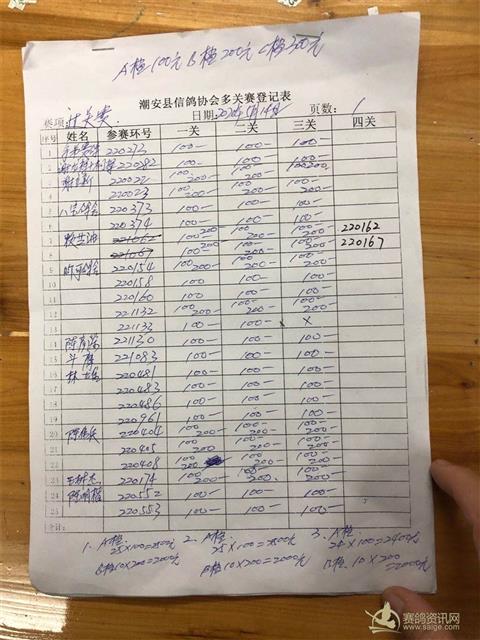 A档100元 B档200元 C档300元
潮安县信鸽协会多关赛登记表
奖项: 计关赛 日期: 页数: 1
序号 姓名 参赛环号 一关 二关 三关 四关
1 220273 100- 100- 100-
2 220282 100- 100- 100 200-
3 220022 100 200- 100 200- 100 200-
4 220023 100 200- 100 200- 100 200-
5 220373 100- 100- 100-
6 220374 100- 100- 100-
7 221062 100 200- 100 200- 100 200- 220162
8 221067 100 200- 100 200- 100 200- 220167
9 220154 100 200- 100 200- 100 200-
10 220158 100- 100- 100-
11 220160 100- 100- 100-
12 221132 100 200- 100 200- 100 200-
13 221133 100- 100- X
14 221130 100- 100- 100-
15 221083 100- 100- 100-
16 220481 100- 100- 100-
17 220483 100- 100- 100-
18 220486 100- 100- 100-
19 220961 100- 100- 100-
20 220404 100 200- 100 200- 100 200-
21 220405 100 200- 100 200- 100 200-
22 220408 100 200 100 200- 100 200-
23 220174 100 200- 100 200- 100 200-
24 220552 100- 100- 100-
25 220553 100- 100- 100-
合计:
1. A档 2. A档 3. A档
25×100=2500元 25×100=2500元 24×100=2400元
B档10×200=2000元 B档10×200=2000元 B档10×200=2000元
赛鸽资讯网
www.saige.com